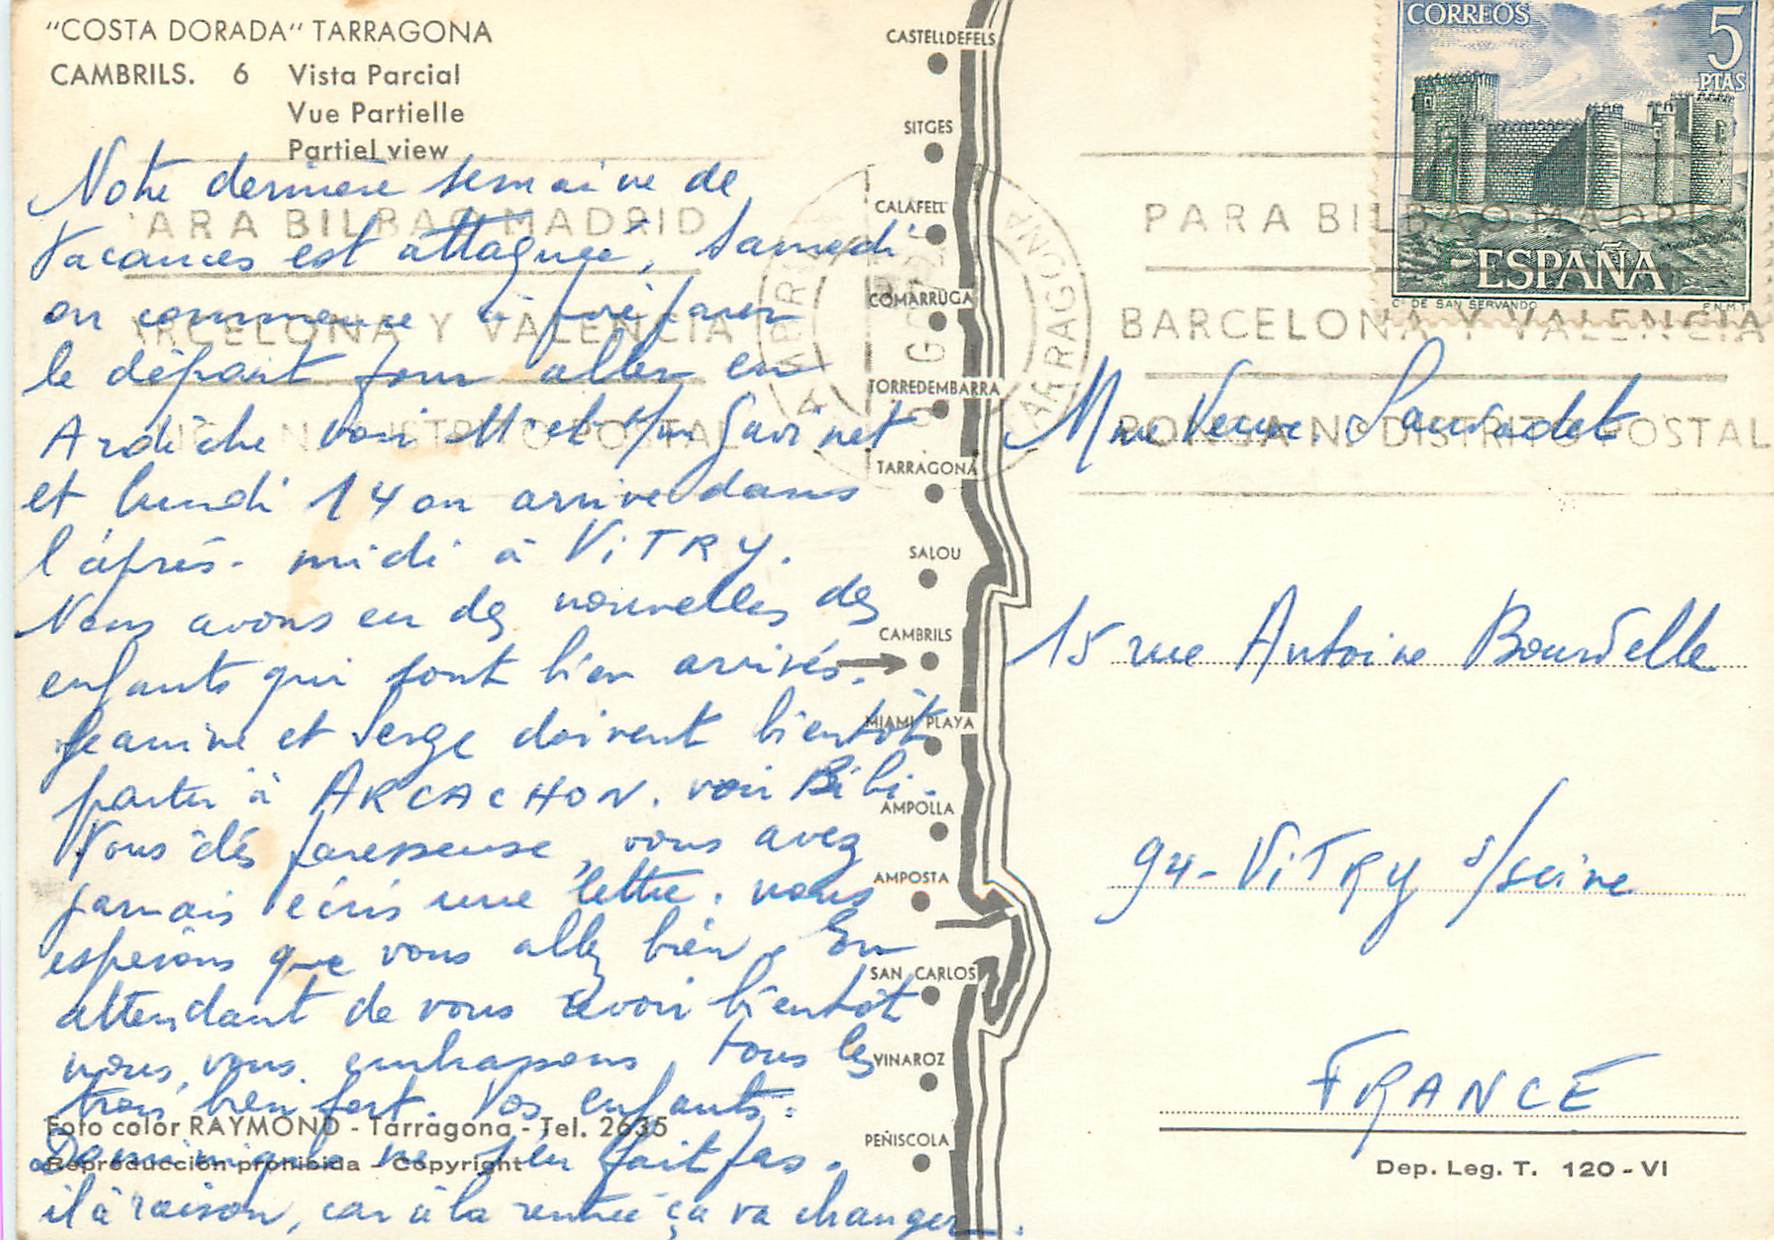 "COSTA DORADA" TARRAGONA
CAMBRILS. 6 Vista Parcial
Vue Partielle
Partiel view
Notre dernière semaine de
vacances est attaquée, Samedi
on commence à préparer
le départ pour aller en
Ardèche voir Mr et Mme
et lundi 14 on arrive dans
l'après-midi à ViTRY.
Nous avons eu des nouvelles des
enfants qui sont bien arrivés.
Jeanine et Serge doivent bientôt
partir à ARCACHON. voir Bibi.
Vous êtes paresseuse, vous avez
jamais écris une lettre. nous
espérons que vous allez bien. En
attendant de vous avoir bientôt
nous, vous embrassons, tous les
trois bien fort. Vos enfants.
Dominique ne s'en fait pas.
il à raison, car à la rentrée ça va changer.
Foto color RAYMOND - Tarragona - Tel. 2635
Reproducción prohibida - Copyright
CASTELLDEFELS
SITGES
CALAFELL
COMARRUGA
TORREDEMBARRA
TARRAGONA
SALOU
CAMBRILS
MIAMI PLAYA
AMPOLLA
AMPOSTA
SAN CARLOS
VINAROZ
PEÑISCOLA
ARA BILBAO MADRID
ARCELONA Y VALENCIA
N DISTRITO POSTAL
TARRAGONA
CORREOS
5
PTAS
ESPAÑA
Cº DE SAN SERVANDO
F.N.M.T.
PARA BILBAO MADRI
BARCELONA Y VALENCIA
PONGA Nº DISTRITO POSTAL
Mme Veuve
15 rue Antoine Bourdelle
94-ViTRY s/seine
FRANCE
Dep. Leg. T. 120 - VI